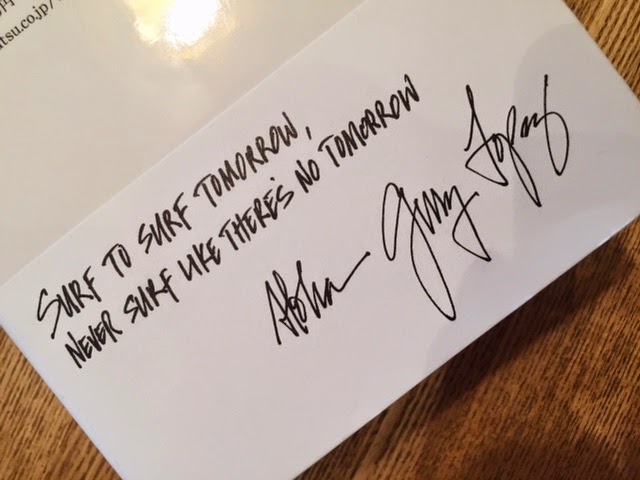 tsu.co.jp/
SURF TO SURF TOMORROW,
NEVER SURF LIKE THERE'S NO TOMORROW
Aloha Gerry Lopez